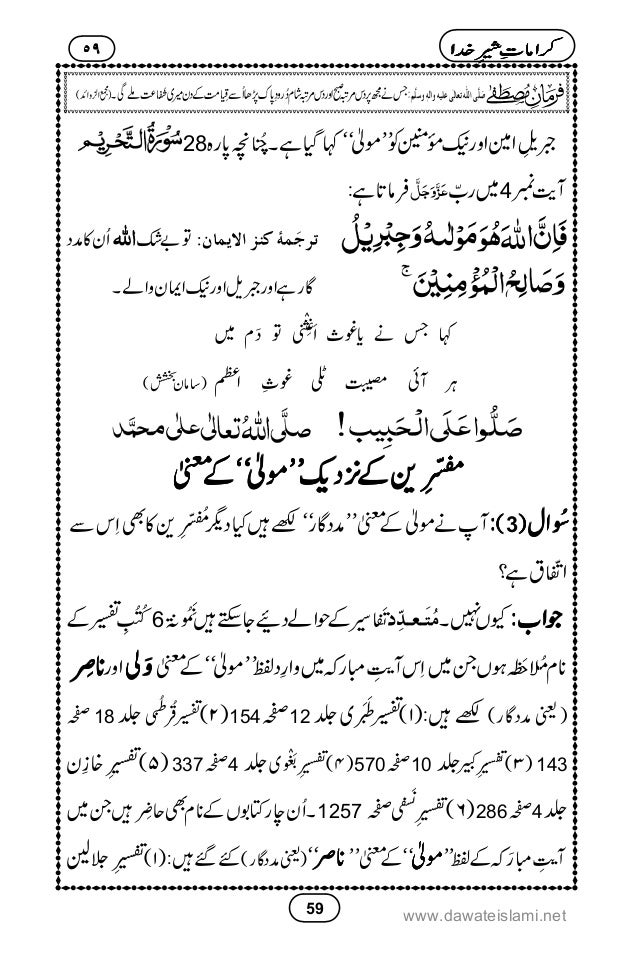 کراماتِ شیرِ خدا
۵۹
فرمانِ مصطفےٰ صلی اللہ تعالٰی علیہ والہ وسلم: جس نے مجھ پر دس مرتبہ صبح اور دس مرتبہ شام دُرودِ پاک پڑھا اُسے قیامت کے دن میری شفاعت ملے گی۔ (مجمع الزوائد)
جبریلِ امین اور نیک مؤمنین کو ’’مولیٰ‘‘ کہا گیا ہے۔ چُنانچہ پارہ 28 سُوْرَۃُ التَّحْرِیْم
آیت نمبر 4 میں ربّ عَزَّوَجَلَّ فرماتا ہے:
فَاِنَّ اللّٰهَ هُوَ مَوْلٰىهُ وَ جِبْرِیْلُ ترجَمۂ کنز الایمان: تو بے شک اللہ اُن کا مدد
وَ صَالِحُ الْمُؤْمِنِیْنَ ۚ گار ہے اور جبریل اور نیک ایمان والے۔
کہا جس نے یا غوث اَغِثْنِی تو دَم میں
ہر آئی مصیبت ٹلی غوثِ اعظم (سامانِ بخشش)
صَلُّوا عَلَی الْحَبِیب! صلَّی اللهُ تعالٰی علٰی محمَّد
مفسّرین کے نزدیک ’’مولیٰ‘‘ کے معنیٰ
سُوال (3): آپ نے مولیٰ کے معنیٰ ’’مددگار‘‘ لکھے ہیں کیا دیگر مُفسّرین کا بھی اِس سے
اتّفاق ہے؟
جواب: کیوں نہیں۔ مُتَعدِّد تفاسیر کے حوالے دئیے جا سکتے ہیں نَمُونۃً 6 کُتُبِ تفسیر کے
نام مُلاحَظہ ہوں جن میں اِس آیتِ مبارکہ میں وارِد لفظ ’’مولیٰ‘‘ کے معنیٰ وَلی اور ناصِر
(یعنی مددگار) لکھے ہیں: (۱) تفسیرِ طَبَری جلد 12 صفحہ 154 (۲) تفسیرِ قُرطُبی جلد 18 صفحہ
143 (۳) تفسیرِ کبیر جلد 10 صفحہ 570 (۴) تفسیرِ بَغْوی جلد 4 صفحہ 337 (۵) تفسیرِ خازِن
جلد 4 صفحہ 286 (۶) تفسیرِ نَسفی صفحہ 1257۔ اُن چار کتابوں کے نام بھی حاضِر ہیں جن میں
آیتِ مبارَکہ کے لفظ ’’مولیٰ‘‘ کے معنیٰ ’’ناصر‘‘ (یعنی مددگار) کئے گئے ہیں: (۱) تفسیرِ جلالین
59
www.dawateislami.net